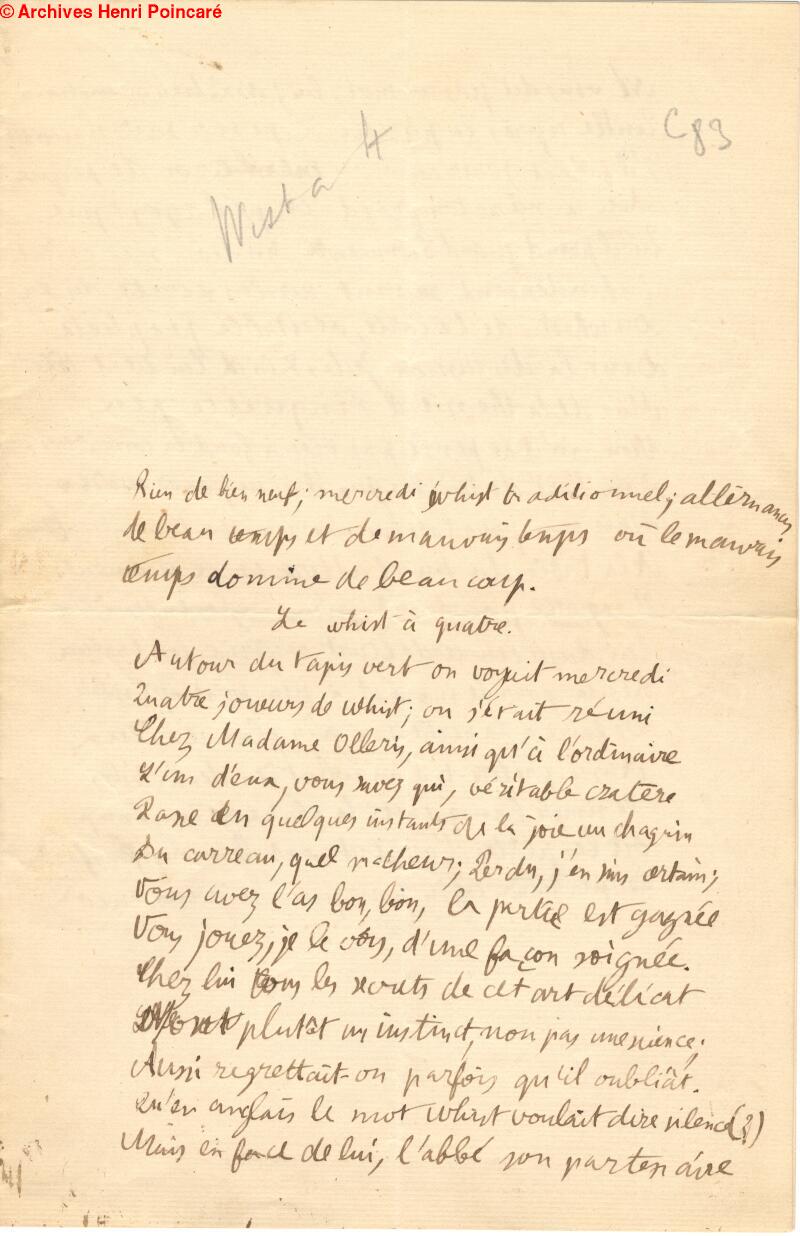 © Archives Henri Poincaré
C 83
Wist a 4
Rien de bien neuf; mercredi whist traditionnel; alternances
de beau temps et de mauvais temps où le mauvais
temps domine de beaucoup.
Le whist à quatre.
Autour du tapis vert on voyait mercredi
Quatre joueurs de whist; on s'était réuni
Chez Madame Olleris, ainsi qu'à l'ordinaire
L'un d'eux, vous savez qui, véritable cratère
Passe en quelques instants de la joie au chagrin
Du carreau, quel malheur; Perdu, j'en suis certain;
Vous avez l'as bon, bon, la partie est gagnée
Vous jouez, je le vois, d'une façon soignée.
Chez lui tous les secrets de cet art délicat
Sont plutôt un instinct, non pas une science;
Aussi regrettait-on parfois qu'il oubliât.
Qu'en anglais le mot whist voulait dire silence (?)
Mais en face de lui, l'abbé son partenaire